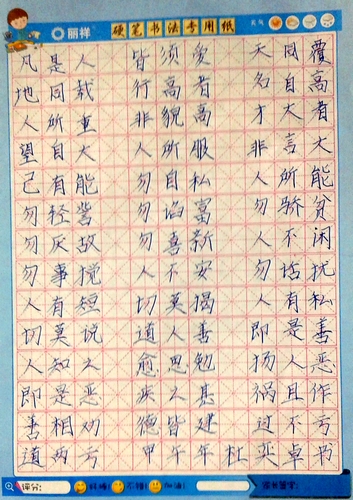 丽祥 硬笔书法专用纸
凡是人 皆须爱 天同覆
地同载 行高者 名自高
人所重 非貌高 才大者
望自大 人所服 非言大
己有能 勿自私 人所能
勿轻訾 勿谄富 勿骄贫
勿厌故 勿喜新 人不闲
勿事搅 人不安 勿话扰
人有短 切莫揭 人有私
切莫说 道人善 即是善
人知之 愈思勉 扬人恶
即是恶 疾之甚 祸且作
善相劝 德皆建 过不亏
道两亏 甲午年 杜奕卓书
评分: 很棒! 不错! 加油!